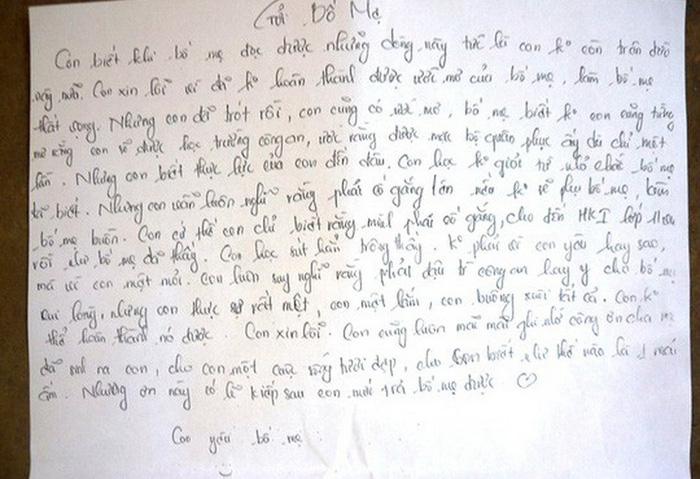 Gửi Bố Mẹ
Con biết khi bố mẹ đọc được những dòng này tức là con ko còn trên đời
này nữa. Con xin lỗi vì đã ko hoàn thành được ước mơ của bố mẹ, làm bố mẹ
thất vọng. Nhưng con đã trót rồi, con cũng có ước mơ, bố mẹ biết ko con cũng từng
mơ rằng con sẽ được học trường công an, ước rằng được mặc bộ quân phục ấy dù chỉ một
lần. Nhưng con biết thực lực của con đến đâu. Con học ko giỏi từ nhỏ chắc bố mẹ
đã biết. Nhưng con luôn luôn nghĩ rằng phải cố gắng lên nếu ko sẽ phụ bố mẹ, làm
bố mẹ buồn. Con cứ thế con chỉ biết rằng mình phải cố gắng, cho đến HKI lớp 11
rồi như bố mẹ đã thấy. Con học sút hẳn trông thấy. Ko phải vì con yêu hay sao,
mà vì con mệt mỏi. Con luôn suy nghĩ rằng phải đậu trg công an hay y cho bố mẹ
vui lòng, nhưng con thực sự rất mệt, con mệt lắm, con buông xuôi tất cả. Con ko
thể hoàn thành nó được. Con xin lỗi. Con cũng luôn mãi mãi ghi nhớ công ơn cha mẹ
đã sinh ra con, cho con một cuộc sống tươi đẹp, cho con biết như thế nào là 1 mái
ấm. Nhưng ơn này có lẽ kiếp sau con mới trả bố mẹ được.
Con yêu bố mẹ